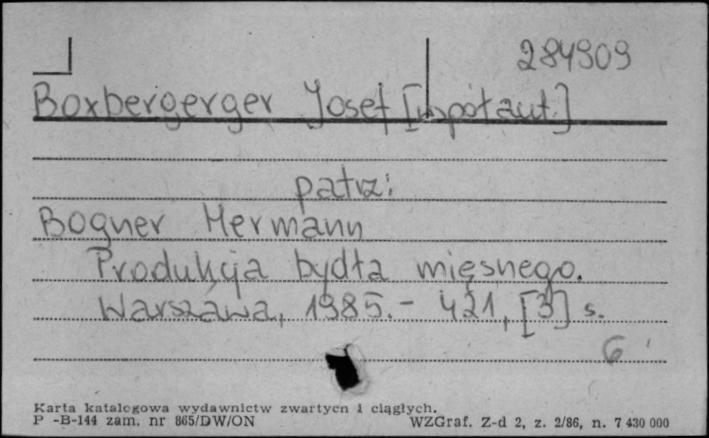 284909
Boxbergerger Josef [współaut.]
patrz:
Bogner Hermann
Produkcja bydła mięsnego.
Warszawa, 1985. – 421, [3] s.
6
Karta katalogowa wydawnictw zwartych i ciągłych.
P -B-144 zam. nr 865/DW/ON WZGraf. Z-d 2, z. 2/86, n. 7 430 000